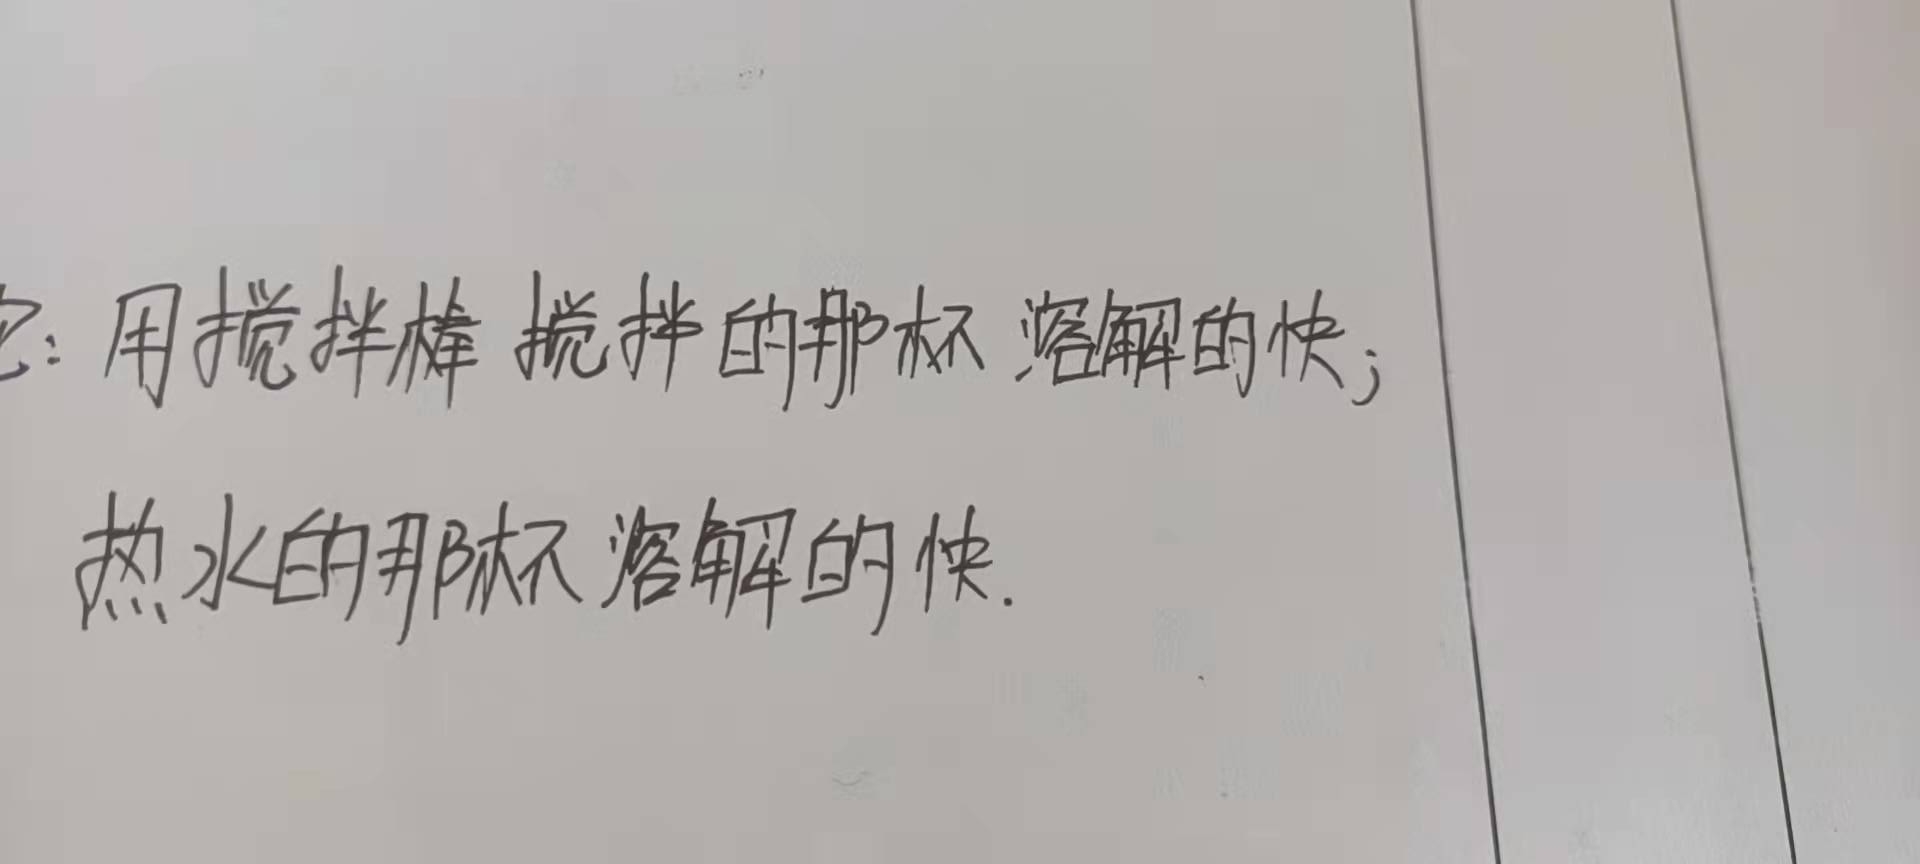 ：用搅拌棒搅拌的那杯溶解的快；
热水的那杯溶解的快.